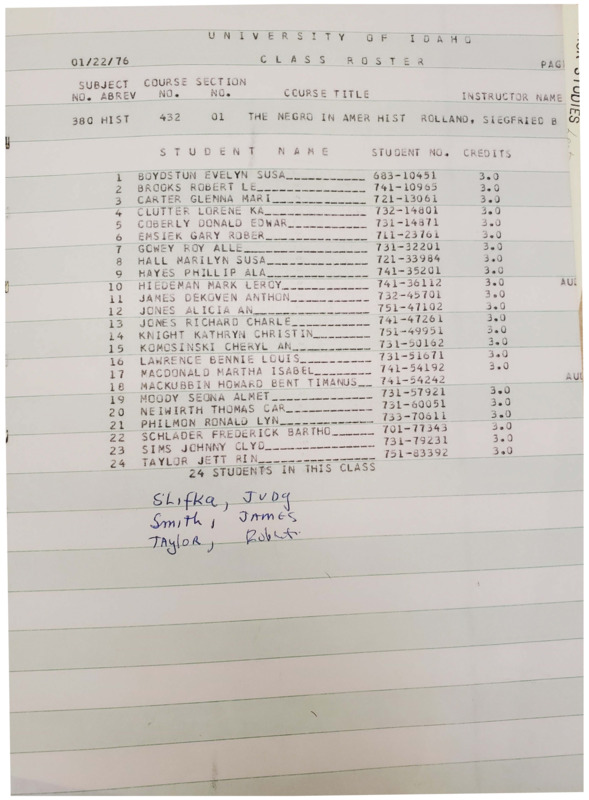 UNIVERSITY OF IDAHO
01/22/76 CLASS ROSTER PAG
SUBJECT COURSE SECTION
NO. ABREV NO. NO. COURSE TITLE INSTRUCTOR NAME
380 HIST 432 01 THE NEGRO IN AMER HIST ROLLAND, SIEGFRIED B
STUDENT NAME STUDENT NO. CREDITS
1 BOYDSTUN EVELYN SUSA 683-10451 3.0
2 BROOKS ROBERT LE 741-10965 3.0
3 CARTER GLENNA MARI 721-13061 3.0
4 CLUTTER LORENE KA 732-14801 3.0
5 COBERLY DONALD EDWAR 731-14871 3.0
6 EMSIEK GARY ROBER 711-23761 3.0
7 GOWEY ROY ALLE 731-32201 3.0
8 HALL MARILYN SUSA 721-33984 3.0
9 HAYES PHILLIP ALA 741-35201 3.0
10 HIEDEMAN MARK LEROY 741-36112 3.0 AU
11 JAMES DEKOVEN ANTHON 732-45701 3.0
12 JONES ALICIA AN 751-47102 3.0
13 JONES RICHARD CHARLE 741-47261 3.0
14 KNIGHT KATHRYN CHRISTIN 751-49951 3.0
15 KOMOSINSKI CHERYL AN 731-50162 3.0
16 LAWRENCE BENNIE LOUIS 731-51671 3.0
17 MACDONALD MARTHA ISABEL 741-54192 3.0
18 MACKUBBIN HOWARD BENT TIMANUS 741-54242 AU
19 MOODY SEONA ALMET 731-57921 3.0
20 NEIWIRTH THOMAS CAR 731-60051 3.0
21 PHILMON RONALD LYN 733-70611 3.0
22 SCHLADER FREDERICK BARTHO 701-77343 3.0
23 SIMS JOHNNY CLYD 731-79231 3.0
24 TAYLOR JETT RIN 751-83392 3.0
24 STUDENTS IN THIS CLASS
Slifka, JUDY
Smith, JAMES
TAYLOR, Robert
STUDIES